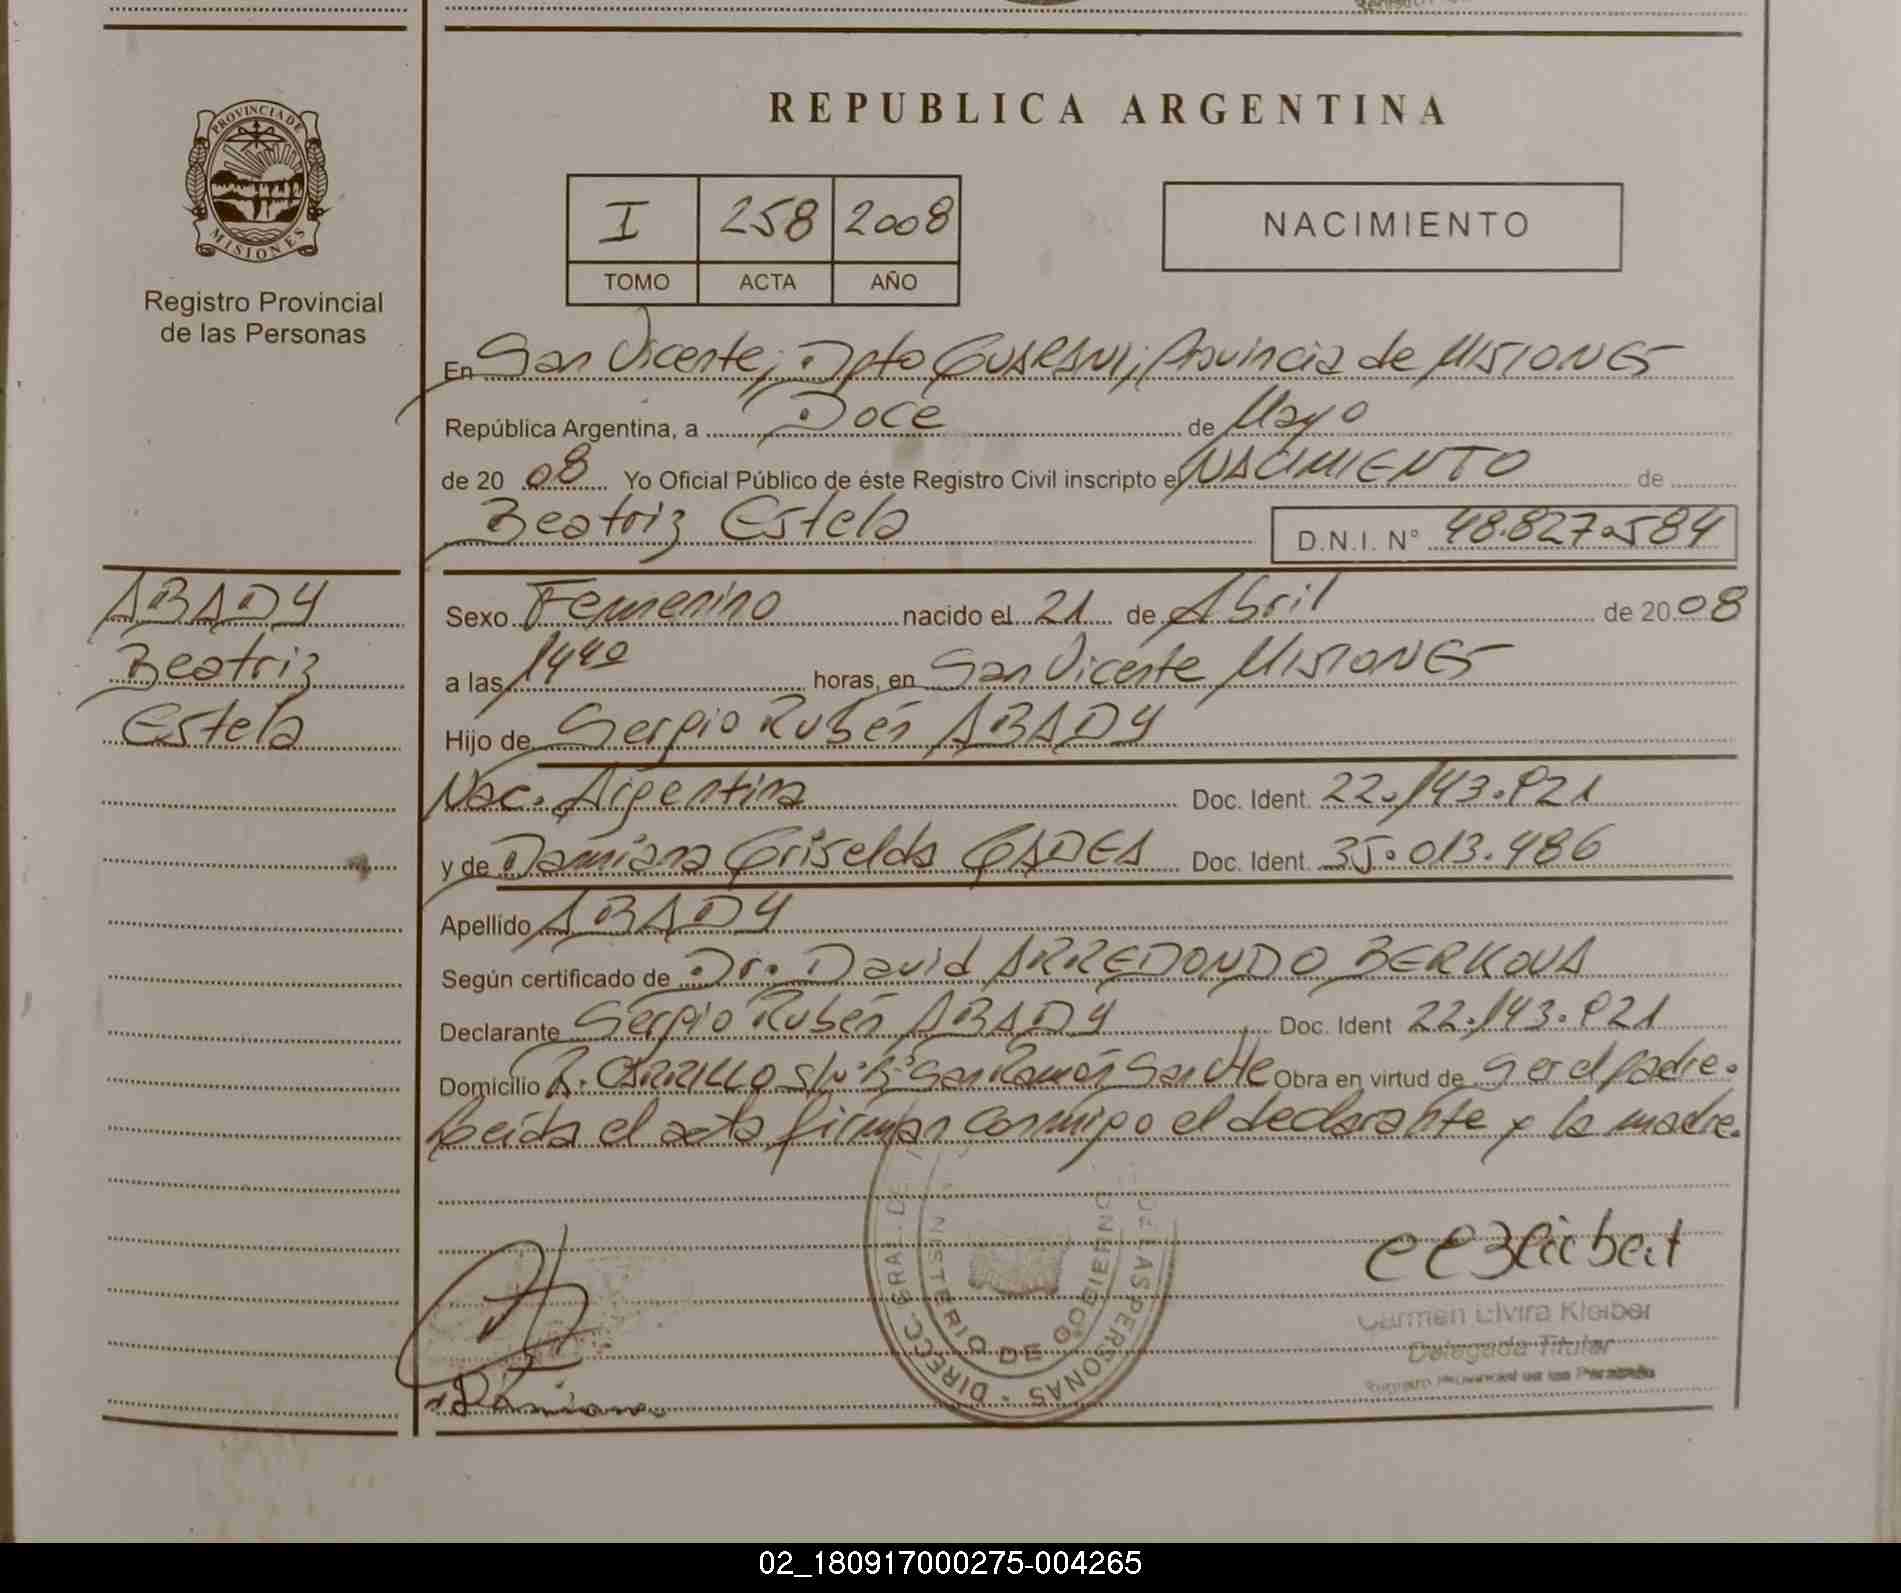 REPUBLICA ARGENTINA
PROVINCIA DE
MISIONES
Registro Provincial
de las Personas
I 258 2008
TOMO ACTA AÑO
NACIMIENTO
En San Vicente; Dpto GUARANI; Provincia de MISIONES
República Argentina, a Doce de Mayo
de 20 08 Yo Oficial Público de éste Registro Civil inscripto el NACIMIENTO de
Beatriz Estela D.N.I. N° 48.827.584
ABADY
Beatriz
Estela
Sexo Femenino nacido el 21 de Abril de 20 08
a las 1440 horas, en San Vicente MISIONES
Hijo de Sergio Rubén ABADY
Nac. Argentina Doc. Ident. 22.143.821
y de Damiana Griselda GADEA Doc. Ident. 35.013.486
Apellido ABADY
Según certificado de Dr. David ARREDONDO BERKOVA
Declarante Sergio Rubén ABADY Doc. Ident 22.143.821
Domicilio R. CARRILLO S/Nº Bº San Ramón San Vte Obra en virtud de ser el padre.
Leída el acta firman conmigo el declarante y la madre.
DIRECC. GRAL. DE LAS PERSONAS
MINISTERIO DE GOBIERNO
Damiana
Carmen Elvira Kleiber
Delegada Titular
Registro Provincial de las Personas
02_180917000275-004265